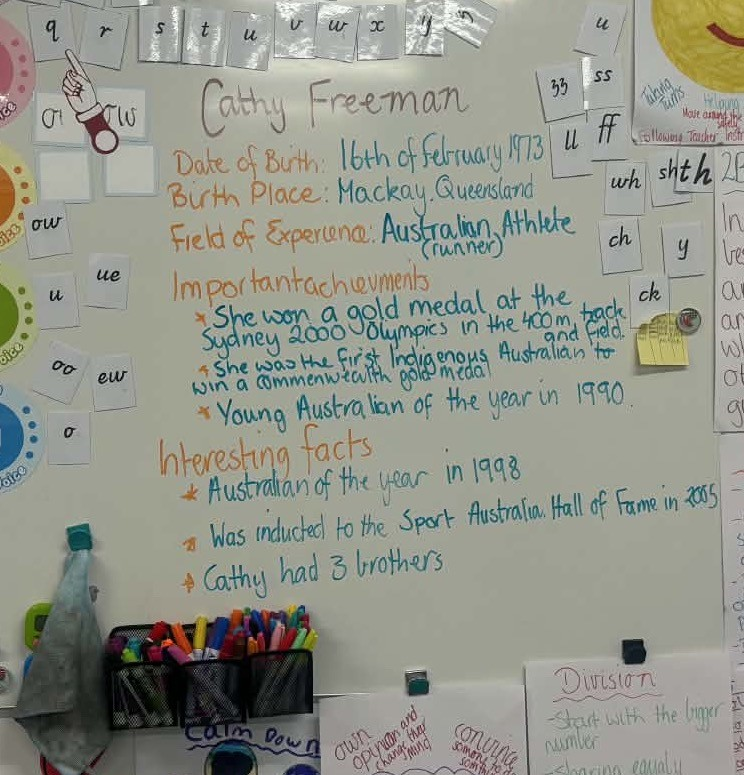 q r s t u v w x y z
u
33 ss
ll ff
wh sh th
ch y
ck
or
ow
u ue
oo ew
o
Cathy Freeman
Date of Birth: 16th of February 1973
Birth Place: Mackay, Queensland
Field of Experience: Australian Athlete
(runner)
Important achievments
* She won a gold medal at the
Sydney 2000 Olympics in the 400m track
and field.
* She was the first Indigenous Australian to
win a commenwealth gold medal
* Young Australian of the year in 1990.
Interesting facts
* Australian of the year in 1998
* Was inducted to the Sport Australia Hall of Fame in 2005
* Cathy had 3 brothers
Taking
Turns
Helping
Move around the
safely
Following Teacher Instr
Calm Down
own
opinion and
change their
mind
convince
someone to
Division
- Start with the bigger
number
- sharing equally